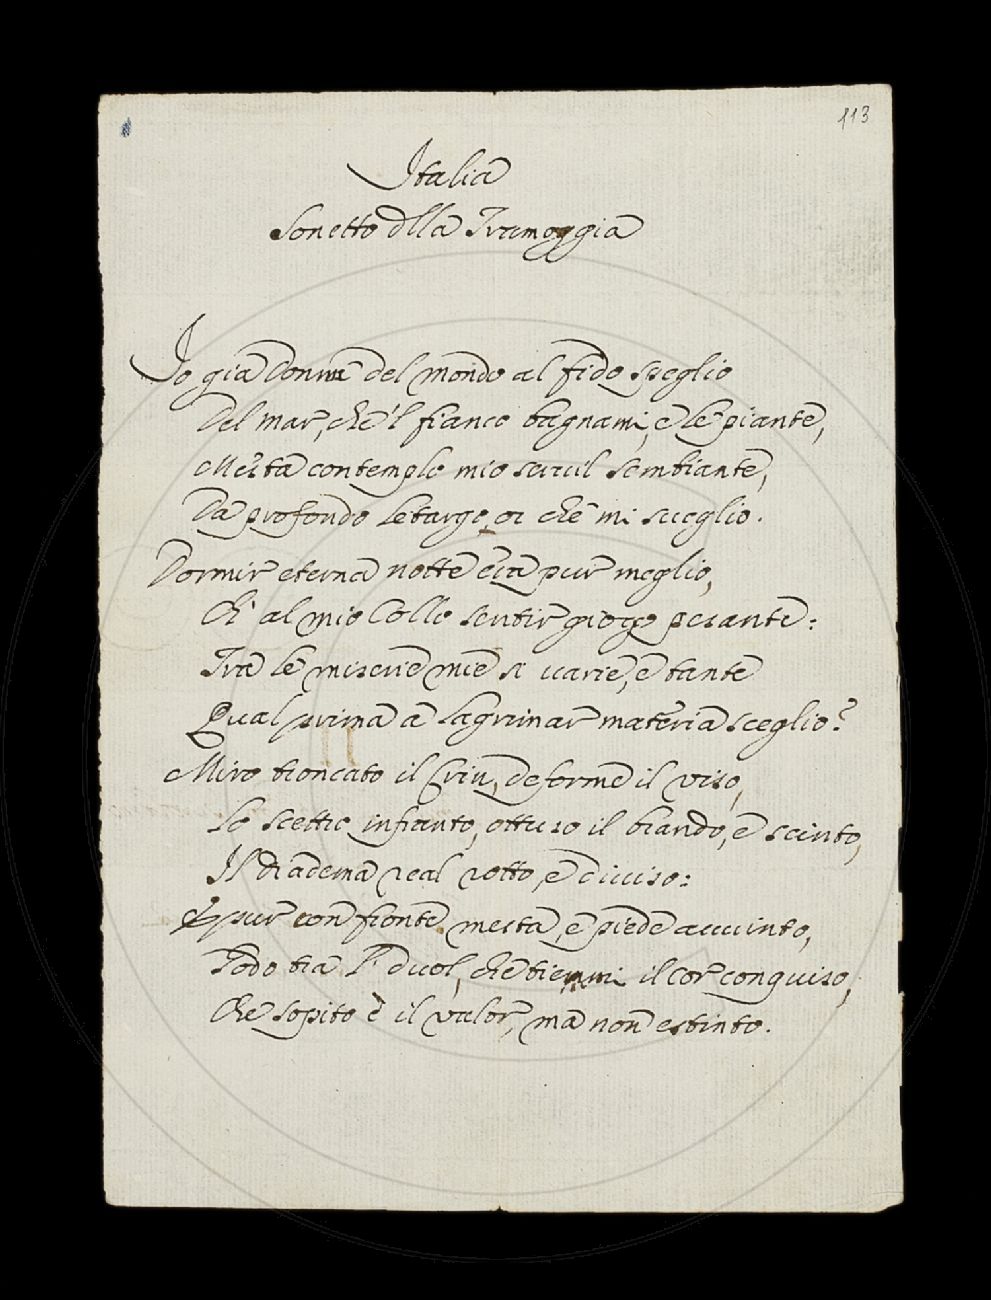 113
Italia
Sonetto dlla Tramoggia
Io già Donna del mondo al fido speglio
Del mar, che 'l fianco bagnami, e le piante,
Mesta contemplo mio servil sembiante,
Da profondo letargo or che mi sveglio.
Dormir eterna notte era pur meglio,
Ch' al mio Collo sentir giogo pesante:
Tra le miserie mie sì varie, e tante
Qual prima a lagrimar materia sceglio?
Miro troncato il Crin, deforme il viso,
Lo scettro infranto, ottuso il brando, e scinto,
Il diadema real rotto, e diviso:
E pur con fronte mesta, e piede avvinto,
Godo tra 'l duol, che tiemmi il cor conquiso,
Che sopito è il valor, ma non estinto.